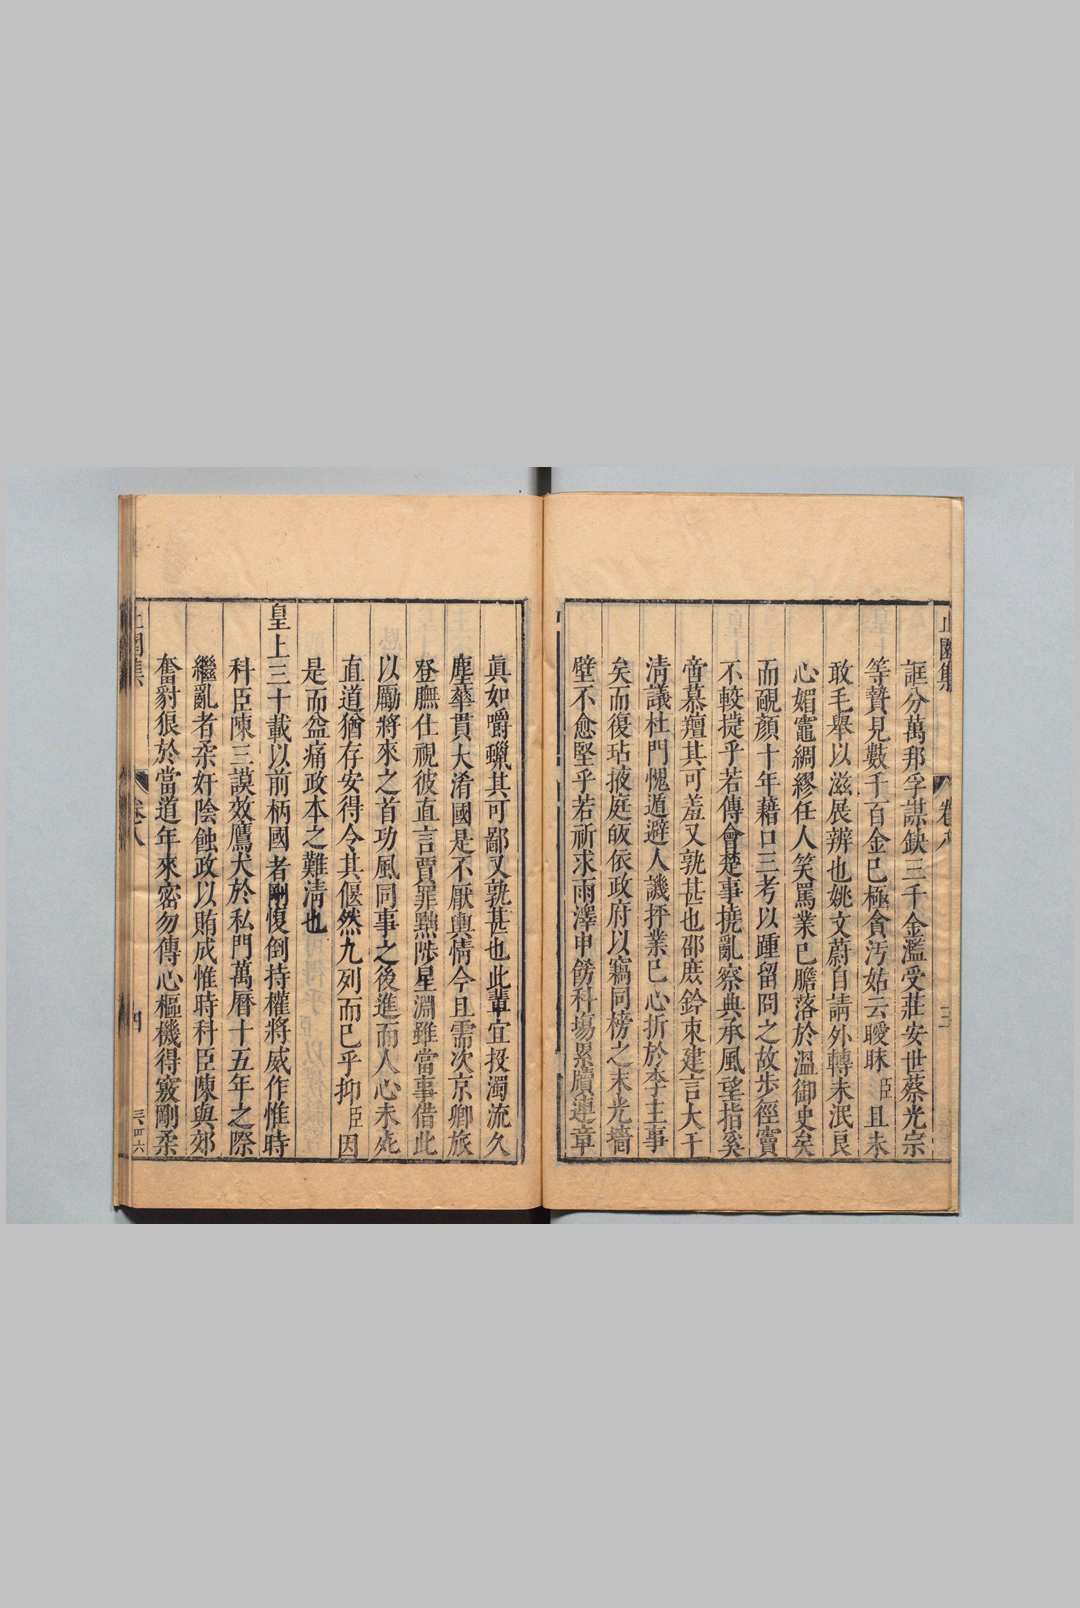 止園集
卷八
三
誆分萬邦孚謀缺三千金濫受莊安世蔡光宗
等贄見數千百金已極貪汚姑云曖昧臣且未
敢毛舉以滋展辨也姚文蔚自請外轉未泯良
心媚竈綢繆任人笑罵業已膽落於溫御史矣
而靦顏十年藉口三考以踵留冏之故步徑竇
不較㨗乎若傳會楚事撓亂察典承風望指奚
啻慕羶其可羞又孰甚也邵庶鈐束建言大干
淸議杜門愧遁避人譏抨業已心折於李主事
矣而復玷掖庭皈依政府以竊同榜之末光墻
壁不愈堅乎若祈求雨澤申飭科場累牘連章
眞如嚼蠟其可鄙又孰甚也此輩宜投濁流久
塵華貫大淆國是不厭輿情今且需次京卿旅
登膴仕視彼直言賈罪黜陟星淵雖當事借此
以勵將來之首功風同事之後進而人心未死
直道猶存安得令其偃然九列而已乎抑臣因
是而益痛政本之難淸也
皇上三十載以前柄國者剛愎倒持權將威作惟時
科臣陳三謨效鷹犬於私門萬曆十五年之際
繼亂者柔奸陰蝕政以賄成惟時科臣陳與郊
奮豺狼於當道年來密勿傳心樞機得竅剛柔
止園集
卷八
四
三四六